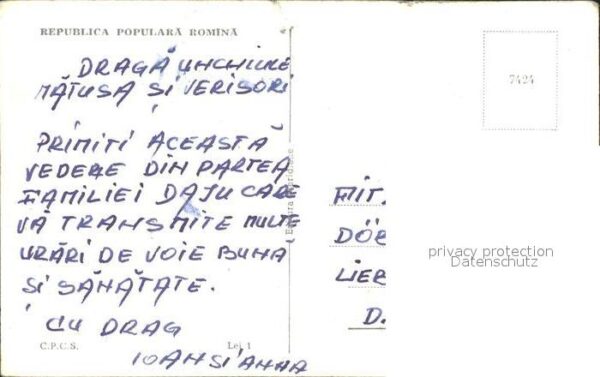 REPUBLICA POPULARĂ ROMÎNĂ
DRAGĂ UNCHIULE
MĂTUSA SI VERISORI
PRIMITI ACEASTĂ
VEDERE DIN PARTEA
FAMILIEI DAJU CARE
VĂ TRANSMITE MULTE
URĂRI DE VOIE BUNA
SI SĂNĂTATE.
CU DRAG
IOAN SI ANNA
C.P.C.S.
Lei 1
7424
DÖB
LIER
D.
privacy protection
Datenschutz